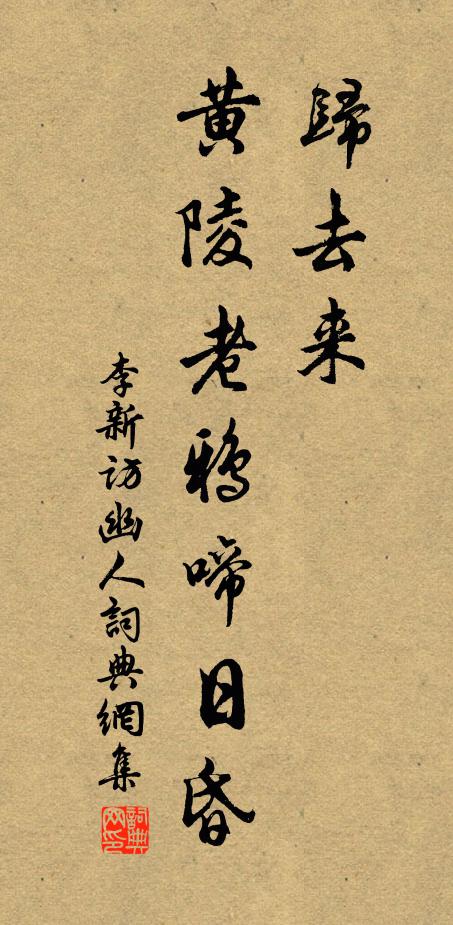 歸去来
黄陵老鴉啼日昏
李新訪幽人詞典網集
詞典网印